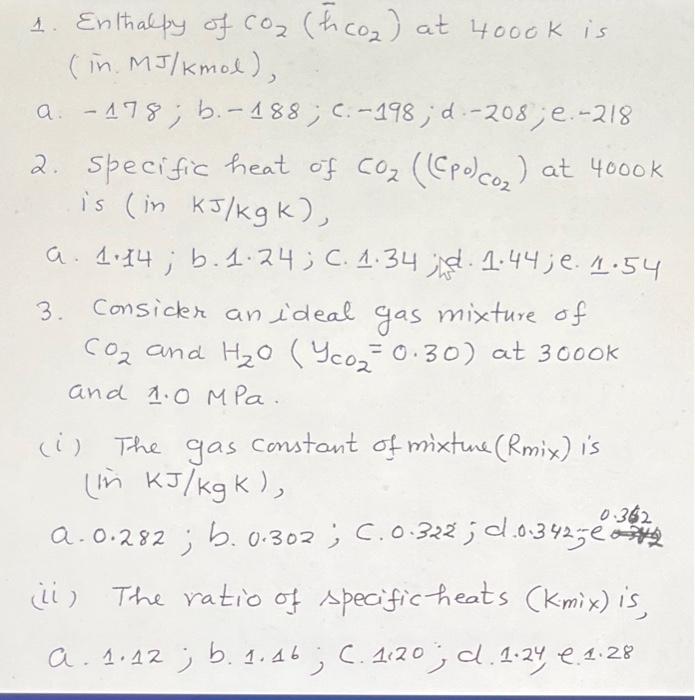 1. Enthalpy of CO₂ (h̄CO₂) at 4000K is
(in. MJ/kmol),
a. -178; b. -188; C. -198; d. -208; e. -218
2. Specific heat of CO₂ ((Cpo)CO₂) at 4000K
is (in KJ/kgK),
a. 1.14; b. 1.24; C. 1.34; d. 1.44; e. 1.54
3. Consider an ideal gas mixture of
CO₂ and H₂O (yCO₂ = 0.30) at 3000K
and 1.0 MPa.
(i) The gas constant of mixture (Rmix) is
(in KJ/kgK),
a. 0.282; b. 0.302; C. 0.322; d. 0.342; e 0.362
(ii) The ratio of specific heats (Kmix) is,
a. 1.12; b. 1.16; C. 1.20; d. 1.24, e. 1.28